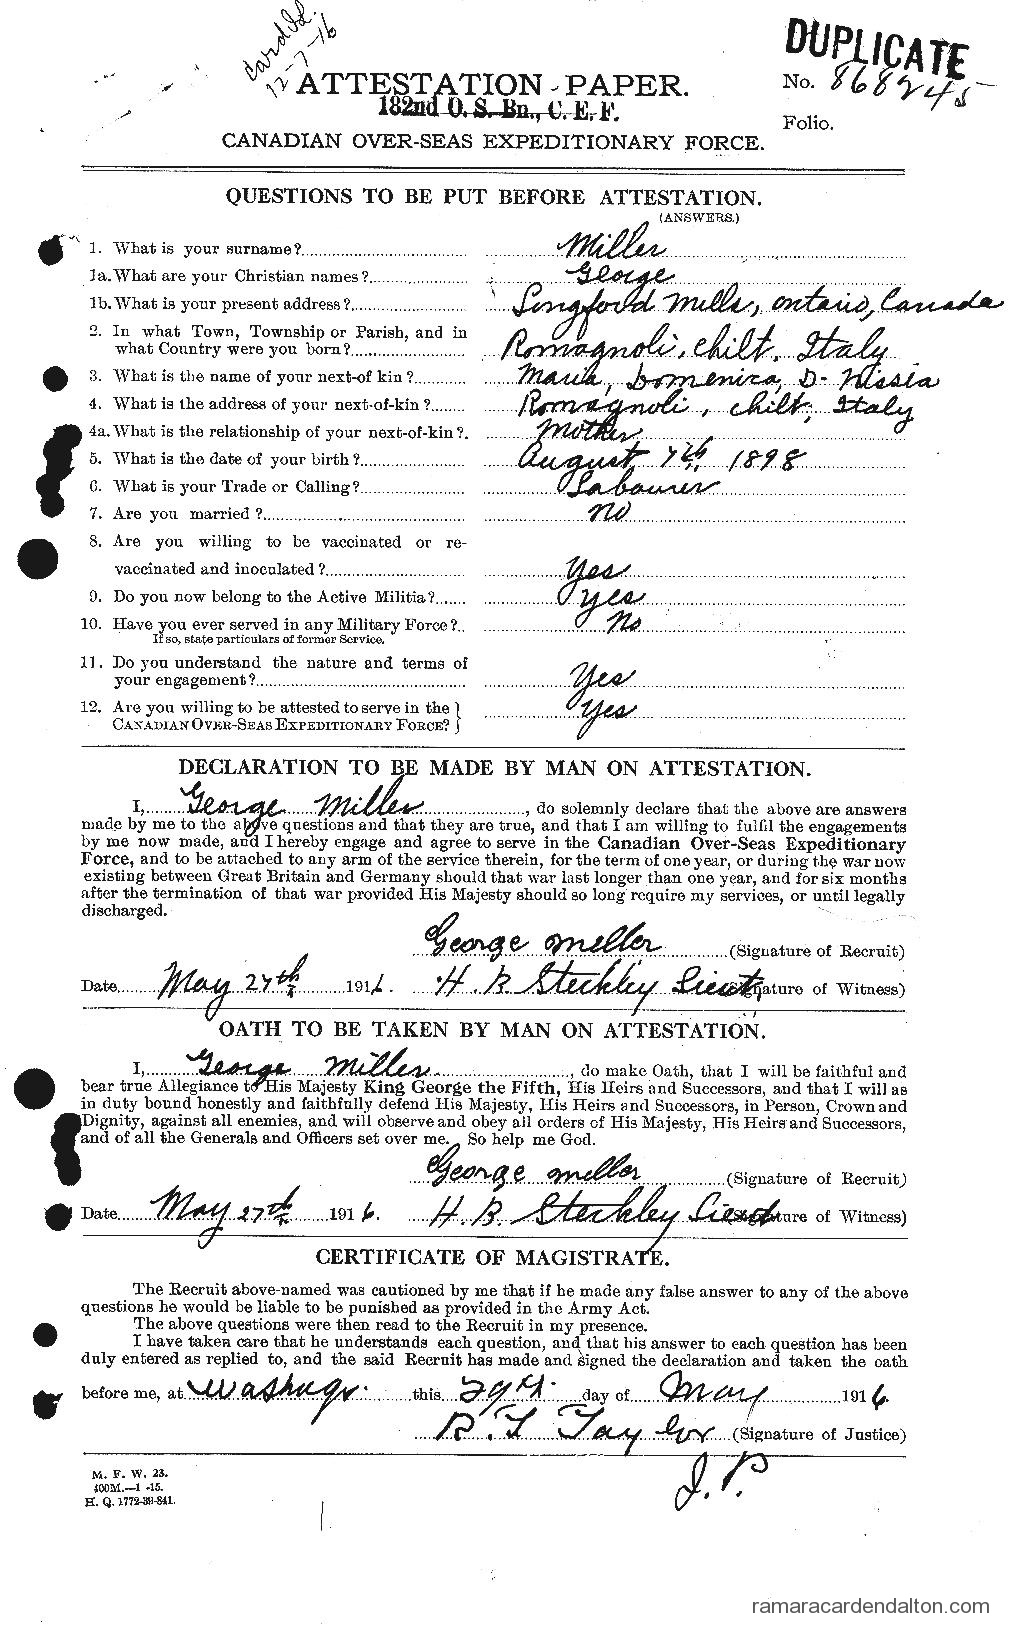 Card Id.
12-7-16
DUPLICATE
ATTESTATION PAPER.
No. 868245
182nd O. S. Bn., C. E. F.
Folio.
CANADIAN OVER-SEAS EXPEDITIONARY FORCE.
QUESTIONS TO BE PUT BEFORE ATTESTATION.
(ANSWERS.)
1. What is your surname? Miller
1a. What are your Christian names? George
1b. What is your present address? Longford Mills, Ontario, Canada
2. In what Town, Township or Parish, and in
what Country were you born? Romagnoli, Chilt, Italy
3. What is the name of your next-of kin? Maria, Domenica, D- Nissia
4. What is the address of your next-of-kin? Romagnoli, Chilt, Italy
4a. What is the relationship of your next-of-kin? Mother
5. What is the date of your birth? August 7th 1898
6. What is your Trade or Calling? Labourer
7. Are you married? No
8. Are you willing to be vaccinated or re-
vaccinated and inoculated? Yes
9. Do you now belong to the Active Militia? Yes
10. Have you ever served in any Military Force? No
If so, state particulars of former Service.
11. Do you understand the nature and terms of
your engagement? Yes
12. Are you willing to be attested to serve in the
CANADIAN OVER-SEAS EXPEDITIONARY FORCE? Yes
DECLARATION TO BE MADE BY MAN ON ATTESTATION.
I, George Miller, do solemnly declare that the above are answers
made by me to the above questions and that they are true, and that I am willing to fulfil the engagements
by me now made, and I hereby engage and agree to serve in the Canadian Over-Seas Expeditionary
Force, and to be attached to any arm of the service therein, for the term of one year, or during the war now
existing between Great Britain and Germany should that war last longer than one year, and for six months
after the termination of that war provided His Majesty should so long require my services, or until legally
discharged.
George Miller (Signature of Recruit)
Date May 27th 1916. H B Steckley Lieut (Signature of Witness)
OATH TO BE TAKEN BY MAN ON ATTESTATION.
I, George Miller, do make Oath, that I will be faithful and
bear true Allegiance to His Majesty King George the Fifth, His Heirs and Successors, and that I will as
in duty bound honestly and faithfully defend His Majesty, His Heirs and Successors, in Person, Crown and
Dignity, against all enemies, and will observe and obey all orders of His Majesty, His Heirs and Successors,
and of all the Generals and Officers set over me. So help me God.
George Miller (Signature of Recruit)
Date May 27th 1916. H B Steckley Lieut (Signature of Witness)
CERTIFICATE OF MAGISTRATE.
The Recruit above-named was cautioned by me that if he made any false answer to any of the above
questions he would be liable to be punished as provided in the Army Act.
The above questions were then read to the Recruit in my presence.
I have taken care that he understands each question, and that his answer to each question has been
duly entered as replied to, and the said Recruit has made and signed the declaration and taken the oath
before me, at Washago this 29th day of May 1916.
R. T. Taylor (Signature of Justice)
J. P.
M. F. W. 23.
400M.—1 -15.
H. Q. 1772-39-841.
ramaracardendalton.com